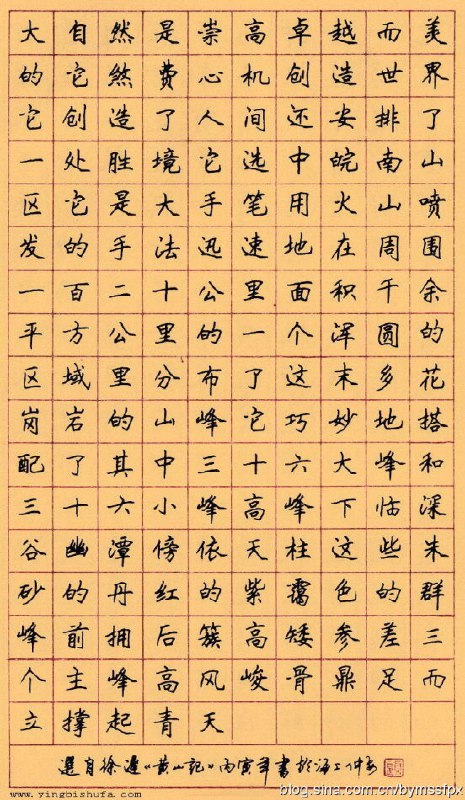 大自然是崇高卓越而美
的它煞费心机创造世界
它创造了人间还安排了
一处胜境它选中皖南山
区它是大手笔用火山喷
发的手法迅速地在周围
一百二十公里面积千余
平方公里的一个浑圆的
区域里分布了这末多花
岗岩的山峰它巧妙地搭
配了其中三十六大峰和
三十六小峰高峰下临深
谷幽潭傍依天柱这些朱
砂的丹红的紫霭色的群
峰前拥后簇高矮参差三
个主峰高风峻骨鼎足而
立撑起青天
選自徐遲《黄山記》丙寅年書於海上
www.yingbishufa.com
blog.sina.com.cn/bymssfpx